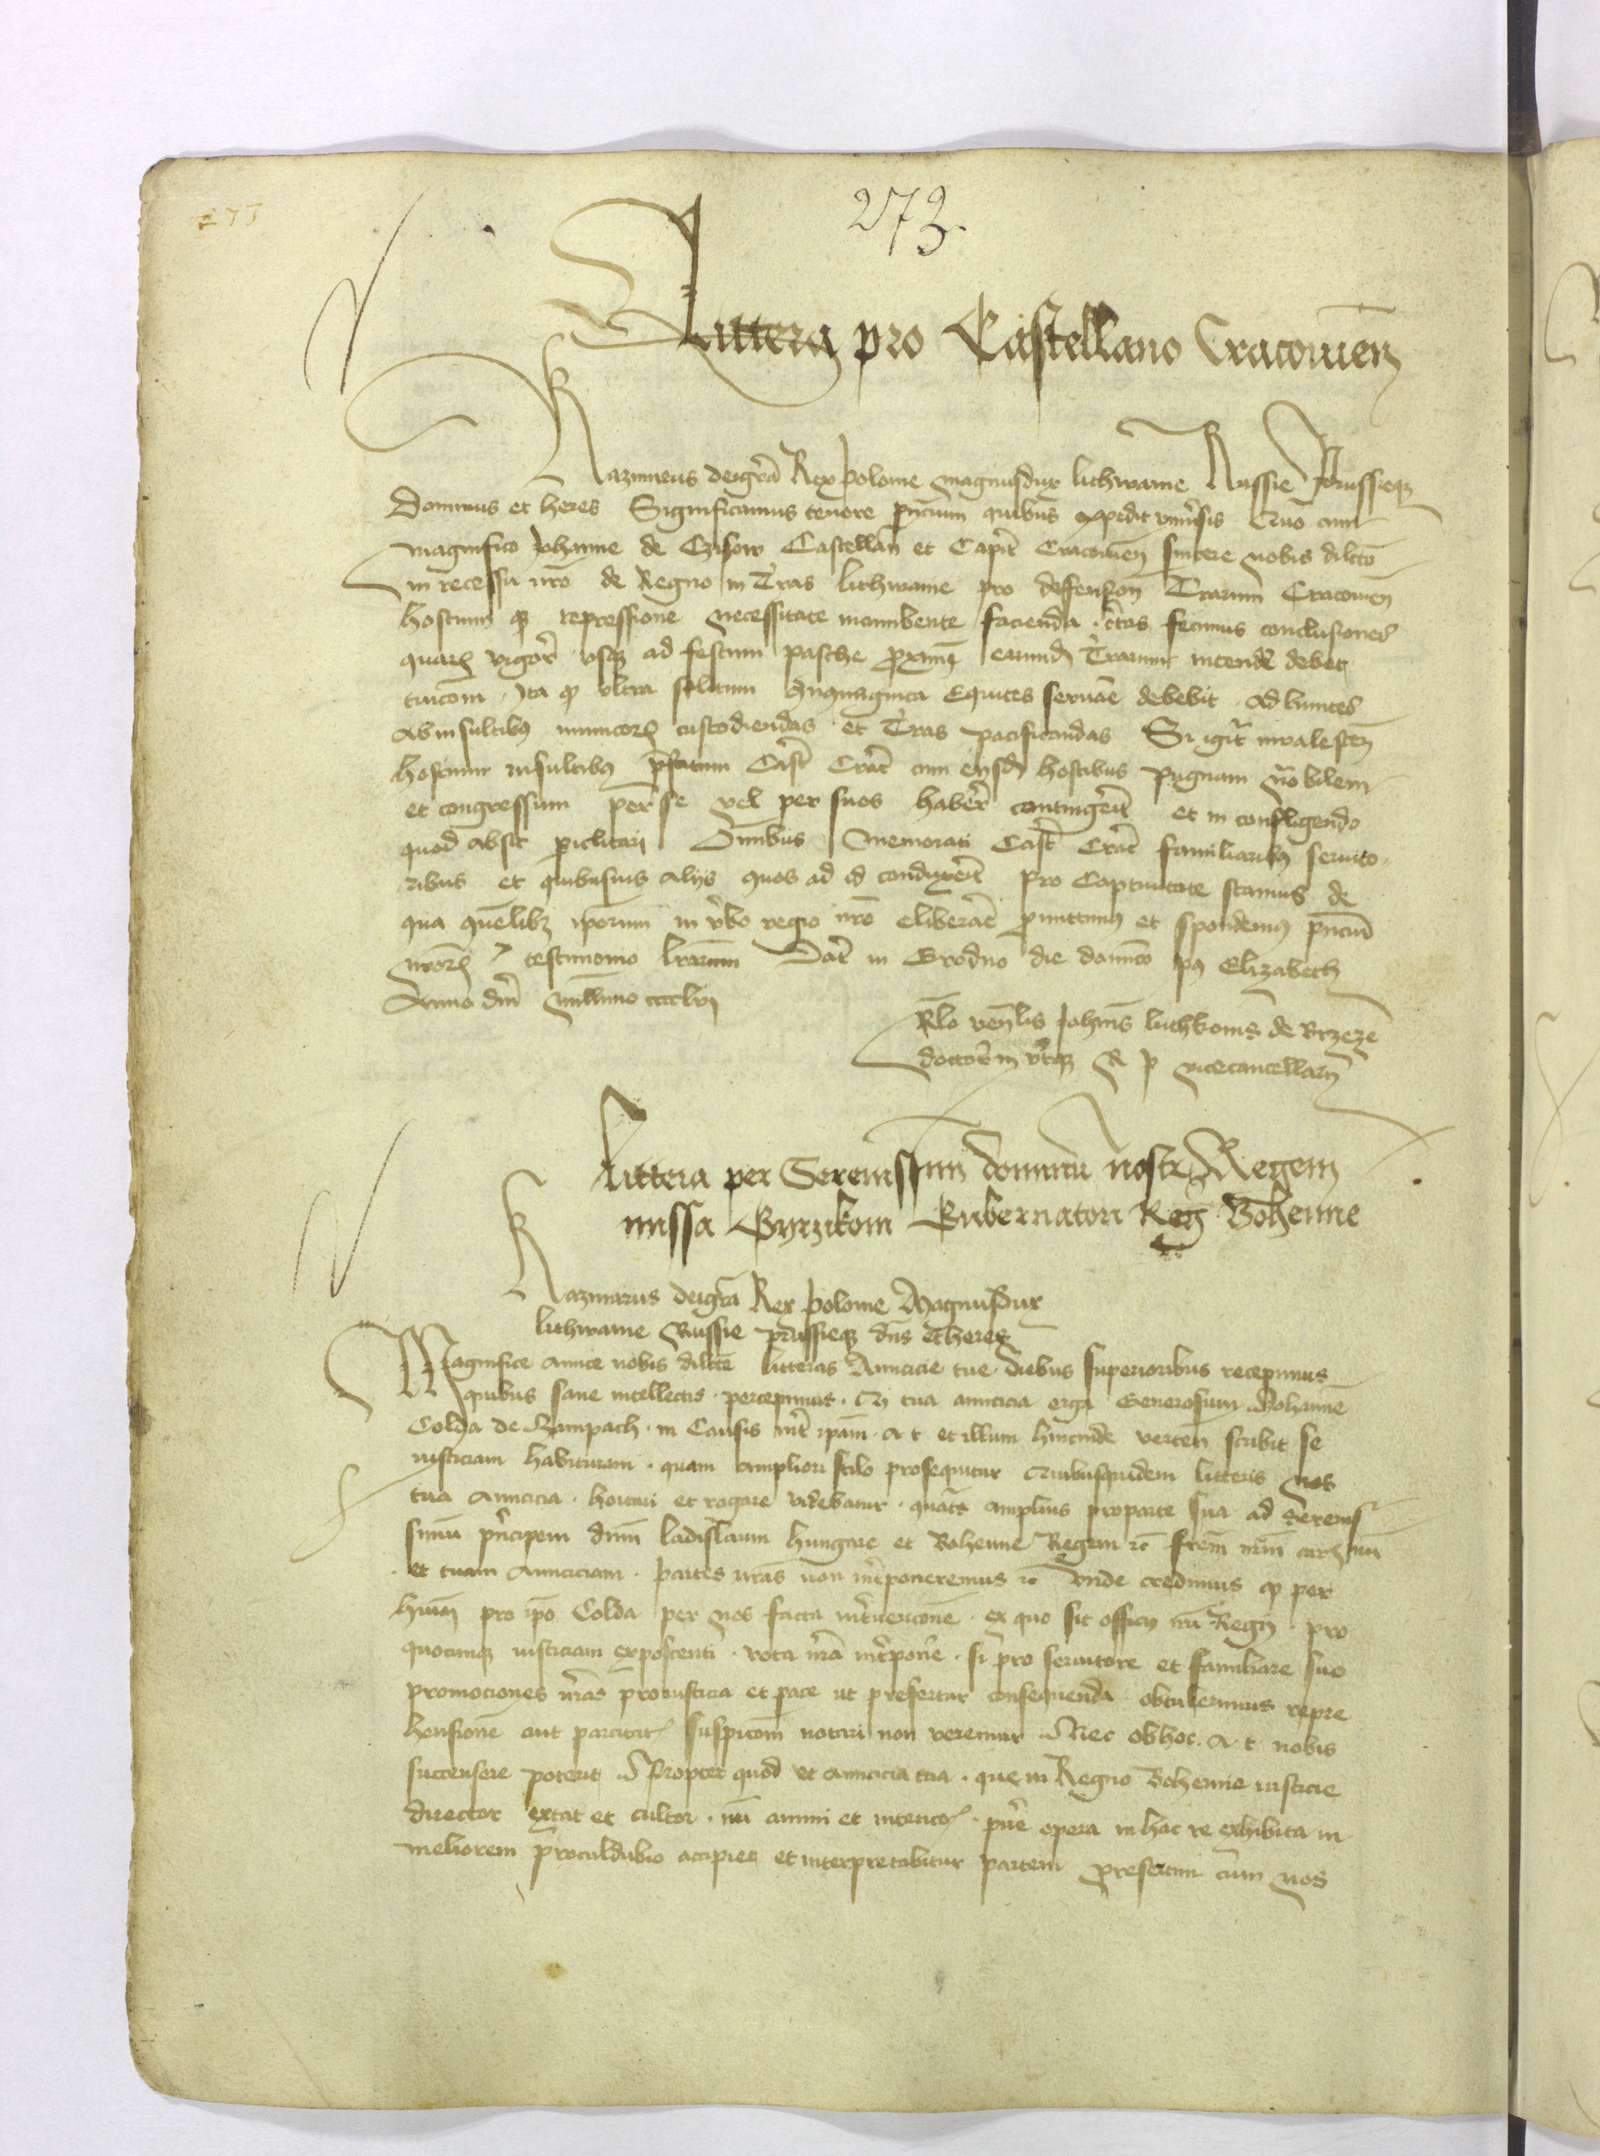 273
273.
Littera pro Castellano Cracouien̄
Kazimirus deigr̄a Rex polonie magnusdux lithwanie Russie Prussieqꝫ
Dominus et heres Significamus tenore pn̄cium quibus expedit vniu̾sis Quo cum
magnifico Johanne de Czisow Castellan̄ et Capit̄ Cracouien̄ sincere nobis dilc̄to
in recessu nr̄o de Regno in T̄ras lithwanie pro deffension̄ T̄rarum Cracouien̄
hostium qꝫ repressione necessitate incumbente facienda c̄tas fecimus conclusiones
quarꝝ vigor̄ vsqꝫ ad festum pasche ꝓximū earund̄ T̄rarum intender̄ debet
tuicōni Ita ꝙ vltra solitum quinquaginta Equites seruar̄e debebit Ad limites
ab insultibꝯ inimicorꝝ custodiendas et T̄ras pacificandas Si igit̄ inualescen̄
hostium insultibꝯ pr̄fatum Cast̄ Crac̄ cum eisd̄ hostibus pugnam
et congressum per se vel per suos haber̄ contingeret̄ et in confligendo
quod absit periclitari Om̄ibus Memorati Cast̄ Crac̄ familiaribꝯ seruito
ribus et quibusuis alijs quos ad id conduxerit̄ pro Captiuitate stamus de
qua quēlibꝫ ipsorum in v̄bo regio nr̄o eliberar̄e ꝓmittimꝯ et spondemꝯ pn̄ciū
nr̄orꝝ testimonio lr̄arum Dat̄ in Grodno die dominico pꝯ Elizabeth
Anno dn̄i Millimo cccclvj
Rl̄o ven̄lis Johīs luthkonis de Brzeze
doctor̄ in vtr̄qꝫ R p vicecancellarij
Littera per Serenissimū dominū nostrū Regem
missa Gyrzikoni Gubernatori Reḡ Bohemie
Kazimirus deigr̄a Rex polonie Magnusdux
lithwanie Russie prussieqꝫ dn̄s Etheres
Magnifice amice nobis dilc̄te litteras Amicicie tue diebus superioribus recepimus
quibus sane intellectis percepimus ꝙ tua amicicia erga Generosum Johannē
Colda de Zampach in Causis int̄ ipsam A t et illum hincinde verten̄ scribit se
iusticiam habituram quam ampliori stilo prosequitur Quibusquidem litteris nos
tua amicicia hortari et rogare videbatur quat̄s amplius proparte sua ad serenis
simū pr̄ncipem dn̄m ladislaum hungarie et Bohemie Regem ꝛc̄ frēm nr̄m carꝫmū
et tuam amiciciam partes nr̄as non int̄poneremus ꝛc̄ vnde credimus ꝙ per
hm̄oi pro ipō Colda per nos facta int̄uencione ex quo sit officij nr̄i Regij pro
quocunqꝫ iusticiam exposcenti vota nr̄a int̄poner̄e si pro seruitore et familiare suo
promociones nr̄as proiusticia et pace ut prefertur consequenda obtulerimus repre
hensione aut parcitat̄ suspicōni notari non veremur Nec obhoc A t nobis
succensere poterit Propter quod et amicicia tua que in Regno Bohemie iusticie
director extat et cultor nr̄i animi et intencōꝫ pur̄e opera in hac re exhibita in
meliorem proculdubio accipiet et interpretabitur partem presertim cum nos